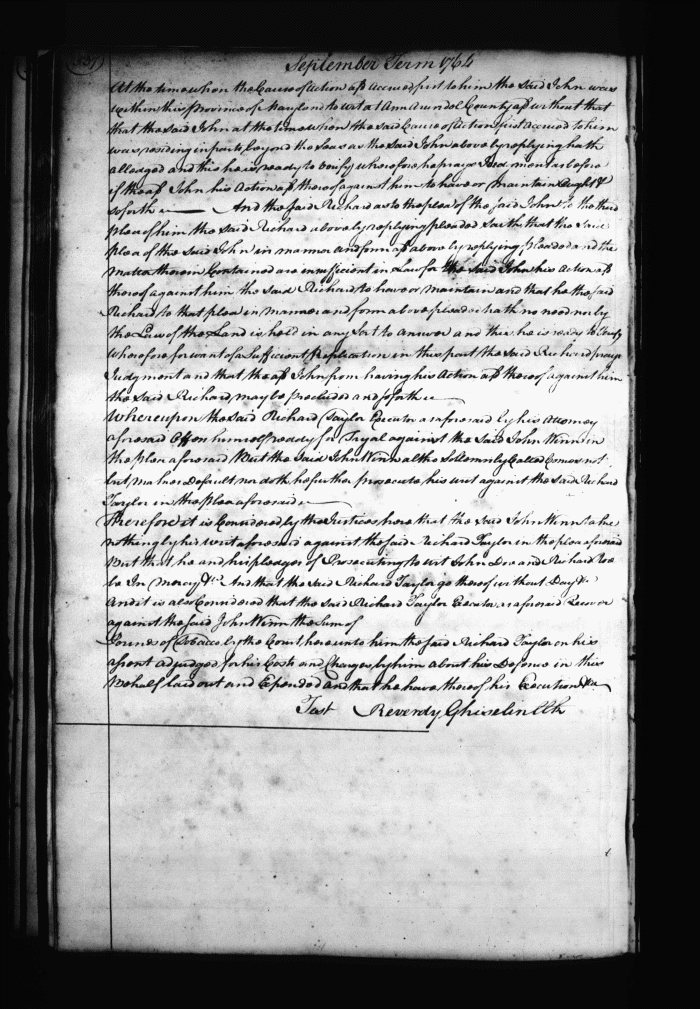 September Term 1764
At the time when the Cause of Action afs Accrued first to him the said John was
within this Province of Maryland to wit at Ann Arundel County afs without that
that the said John at the time when the said Cause of Action first accrued to him
was residing in parts beyond the Seas as the said John above by replying hath
alledged and this he is ready to verify wherefore he prays Judgment as before
if the afs John his Action afs thereof against him to have or maintain Ought &c
so forth And the said Richard as to the plea of the said John to the third
plea of him the said Richard above by replying pleaded Saith that the said
plea of the said John in manner and form afs above by replying pleaded and the
matter therein Contained are insufficient in Law for the said John his Action afs
thereof against him the said Richard to have or maintain and that he the said
Richard to that plea in manner and form above pleaded hath no need nor by
the Law of the Land is held in any sort to answer and this he is ready to Verify
Wherefore for want of a Sufficient Replication in this part the said Richard prays
Judgment and that the afs John from having his Action afs thereof against him
the said Richard may be precluded and so forth
Whereupon the said Richard Taylor Executor as aforesaid by his Attorney
aforesaid Offers himself ready for Tryal against the said John Winn in
the plea aforesaid But the said John Winn altho Sollemnly Called Comes not
but makes Default nor doth he further prosecute his writ against the said Richard
Taylor in the plea aforesaid
Therefore it is Considered by the Justices here that the said John Winn take
nothing by his writ aforesaid against the said Richard Taylor in the plea aforesaid
But that he and his pledges of Prosecuting to wit John Doe and Richard Roe
be In mercy &c. And that the said Richard Taylor go thereof without Day &c
And it is also Considered that the said Richard Taylor Executor as aforesaid Recover
against the said John Winn the Sum of
Pounds of Tobacco by the Court here unto him the said Richard Taylor on his
assent adjudged for his Costs and Charges by him about his Defence in this
Behalf laid out and Expended and that he have thereof his Execution &c.
Test Reverdy Ghiselin Clk